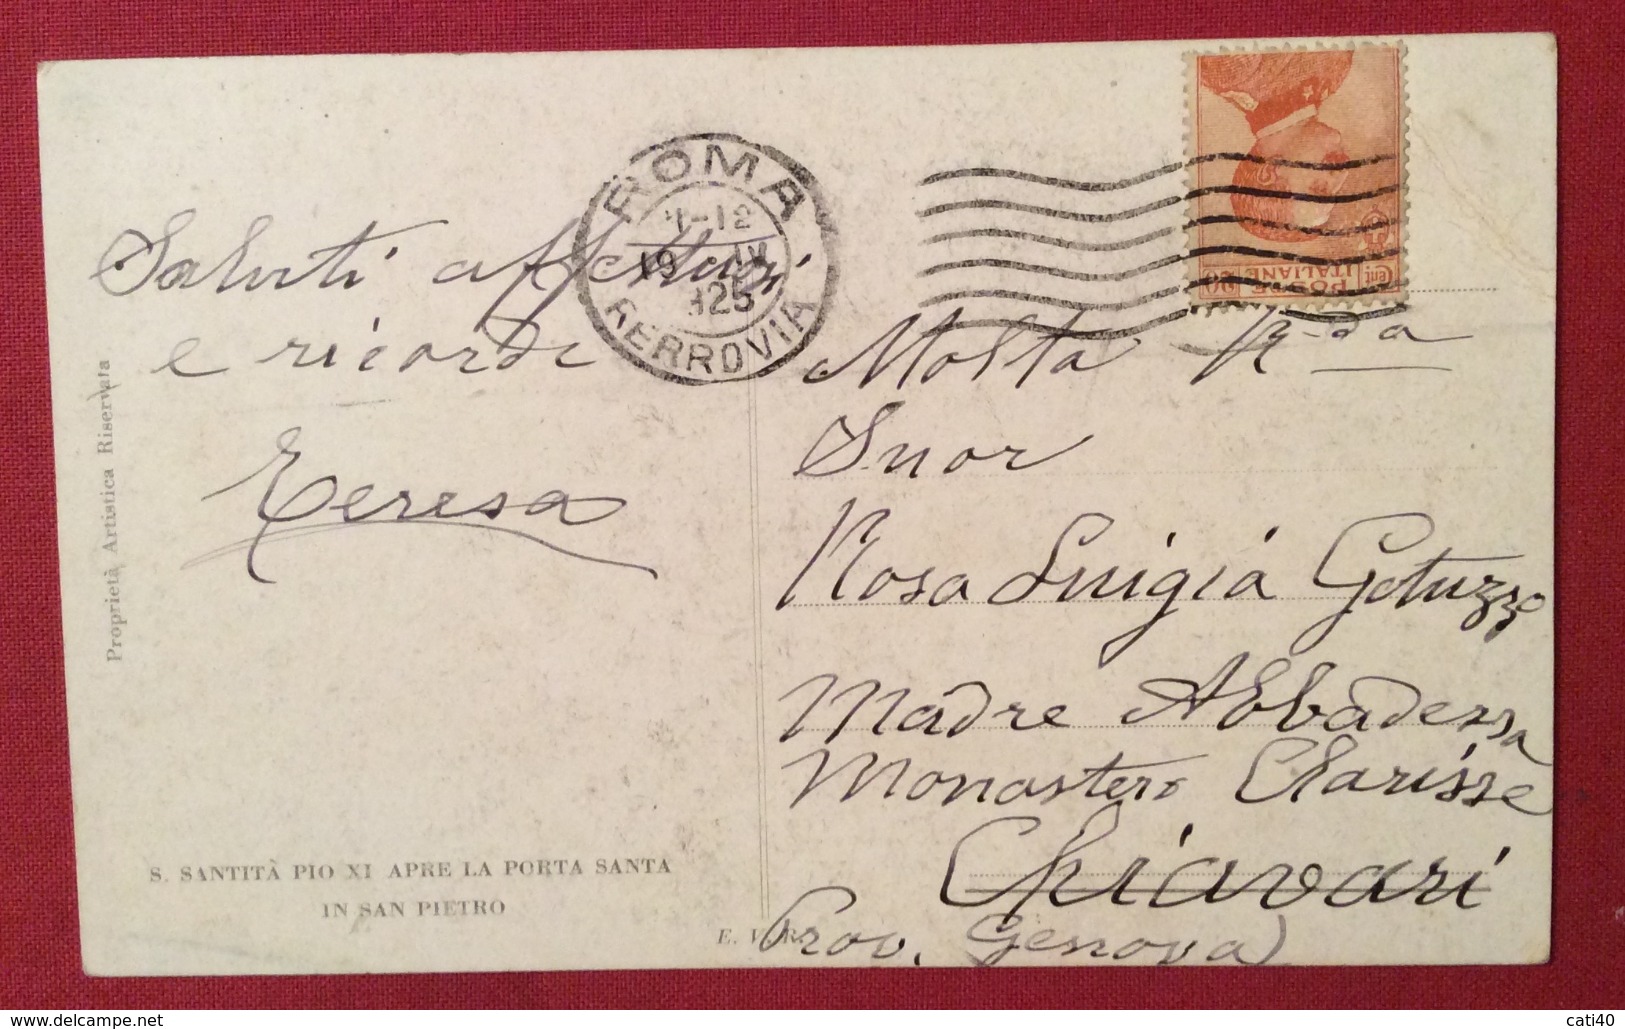 Saluti affettuosi
e ricordi
Teresa
Proprietà Artistica Riservata
S. SANTITÀ PIO XI APRE LA PORTA SANTA
IN SAN PIETRO
E. V. R.
ROMA
-12
19 IV
925
FERROVIA
Cent. POSTE 20
ITALIANE
Molta R-da
Suor
Rosa Luigia Gotuzzo
Madre Abbadessa
Monastero Clarisse
Chiavari
Prov. Genova)
cati40